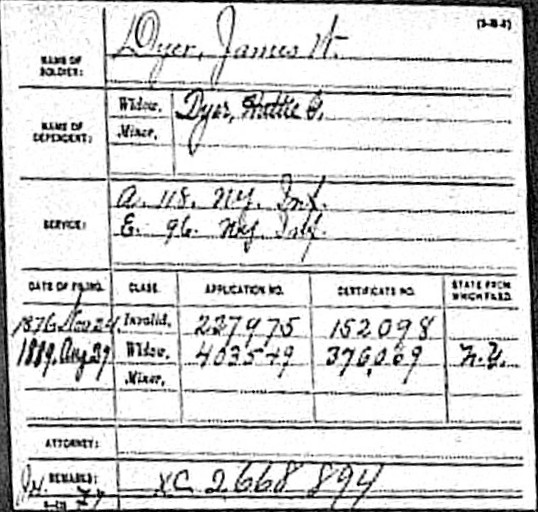 (3-B-4)
NAME OF SOLDIER: Dyer, James H.
NAME OF DEPENDENT: Widow, Dyer, Hattie
Minor,
SERVICE: A. 118. NY. Inf.
E. 96. NY. Inf.
DATE OF FILING. CLASS. APPLICATION NO. CERTIFICATE NO. STATE FROM WHICH FILED.
1876 Nov 24. Invalid, 227975 152098
1889. Aug 29 Widow, 403549 376,069 N.Y.
Minor,
ATTORNEY:
REMARKS: XC 2668 894